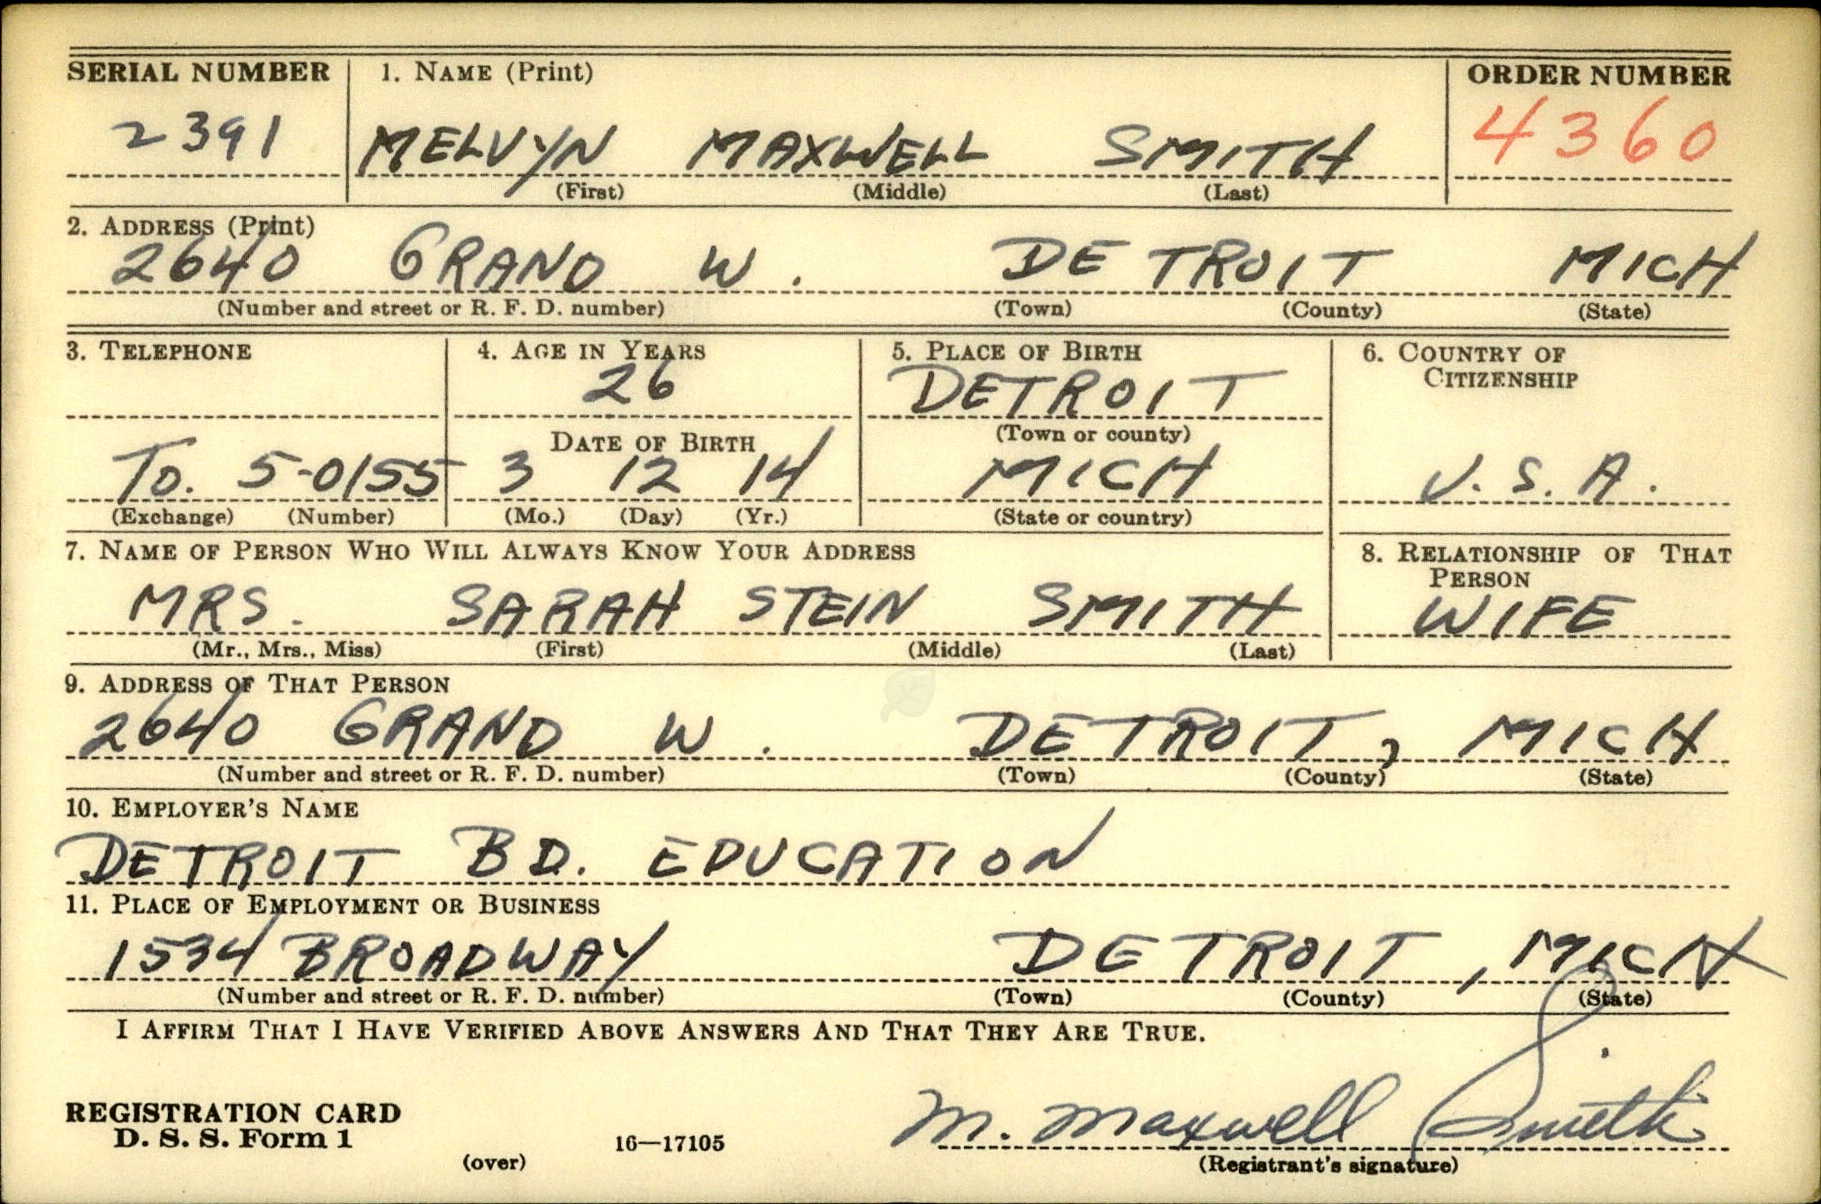 SERIAL NUMBER 1. NAME (Print) ORDER NUMBER
2391 MELVYN MAXWELL SMITH 4360
(First) (Middle) (Last)
2. ADDRESS (Print)
2640 GRAND W. DETROIT MICH
(Number and street or R. F. D. number) (Town) (County) (State)
3. TELEPHONE 4. AGE IN YEARS 5. PLACE OF BIRTH 6. COUNTRY OF CITIZENSHIP
26 DETROIT
DATE OF BIRTH (Town or county)
To. 5-0155 3 12 14 MICH U.S.A.
(Exchange) (Number) (Mo.) (Day) (Yr.) (State or country)
7. NAME OF PERSON WHO WILL ALWAYS KNOW YOUR ADDRESS 8. RELATIONSHIP OF THAT PERSON
MRS. SARAH STEIN SMITH WIFE
(Mr., Mrs., Miss) (First) (Middle) (Last)
9. ADDRESS OF THAT PERSON
2640 GRAND W. DETROIT, MICH
(Number and street or R. F. D. number) (Town) (County) (State)
10. EMPLOYER'S NAME
DETROIT BD. EDUCATION
11. PLACE OF EMPLOYMENT OR BUSINESS
1534 BROADWAY DETROIT, MICH
(Number and street or R. F. D. number) (Town) (County) (State)
I AFFIRM THAT I HAVE VERIFIED ABOVE ANSWERS AND THAT THEY ARE TRUE.
REGISTRATION CARD
D. S. S. Form 1 16—17105 M. Maxwell Smith
(over) (Registrant's signature)